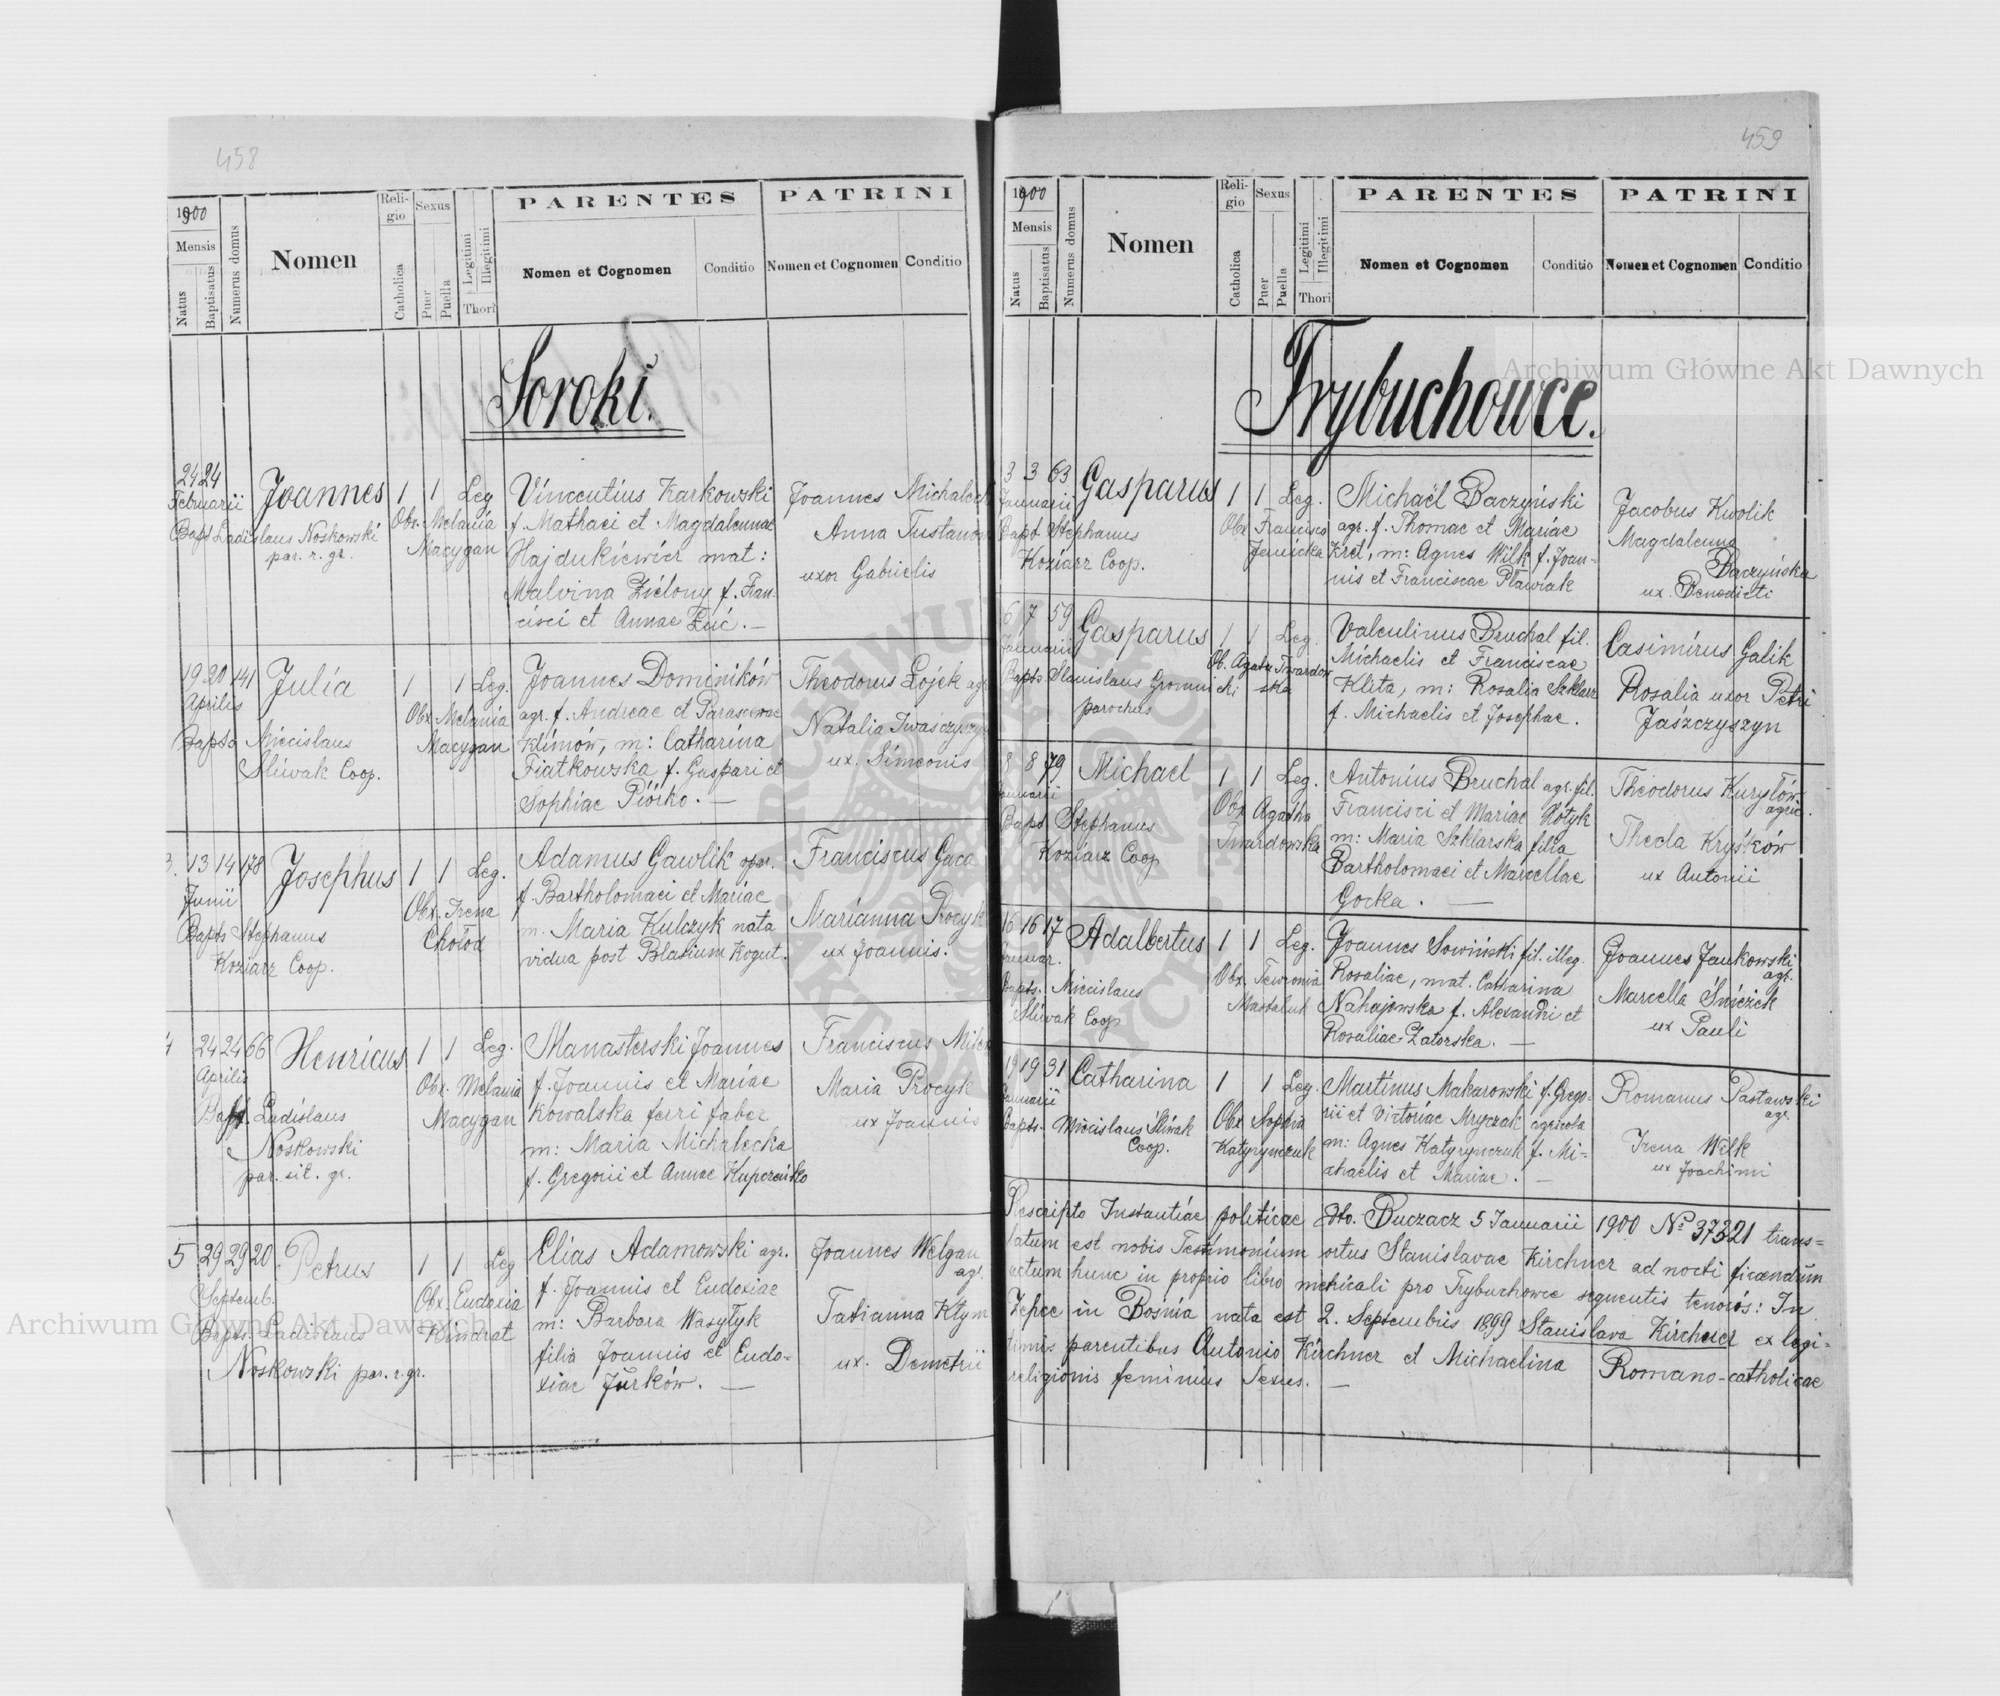 458
1900
Mensis
Natus
Baptisatus
Numerus domus
Nomen
Reli-
gio
Catholica
Sexus
Puer
Puella
Legitimi
Illegitimi
Thori
PARENTES
Nomen et Cognomen
Conditio
PATRINI
Nomen et Cognomen
Conditio
Soroki.
24 24
Februarii
Joannes 1 1 Leg
Bapt Ladislaus Noskowski
par. r. gr.
Obx. Melania
Macygan
Vincentius Karkowski
f. Mathaei et Magdalennae
Hajdukiewicz mat:
Malvina Zielony f. Fran-
cisci et Annae Żuć. —
Joannes
Anna
uxor Gabrielis
19 20 141
Aprilis
Julia 1 1 Leg.
Bapts Miecislaus
Śliwak Coop.
Obx. Melania
Macygan
Joannes Dominików
agr. f. Andreae et Parascevae
Klimów, m: Catharina
Fiatkowska f. Gaspari et
Sophiae Piórko. —
Theodorus Łojek agr
Natalia
ux. Simeonis
3. 13 14 178
Junii
Josephus 1 1 Leg.
Bapts Stephanus
Koziarz Coop.
Obx. Irena
Chołod
Adamus Gawlik opar.
f. Bartholomaei et Mariae
m. Maria Kulczyk nata
vidua post Blasium Kogut.
Franciscus Gaca
Marianna Procyk
ux Joannis.
4 24 24 66
Aprilis
Henricus 1 1 Leg.
Bapt. Ladislaus
Noskowski
par. rit. gr.
Obx. Melania
Macygan
Manasterski Joannes
f. Joannis et Mariae
Kowalska ferri faber
m: Maria Michalecka
f. Gregorii et Annae Kupczeńko
Franciscus
Maria Procyk
ux Joannis
5 29 29 20
Septemb.
Petrus 1 1 Leg
Bapts. Ladislaus
Noskowski par. r. gr.
Obx. Eudoxia
Kindrat
Elias Adamowski agr.
f. Joannis et Eudoxiae
m: Barbara Wasyłyk
filia Joannis et Eudo-
xiae Jurków. —
Joannes Welgan
agr.
Tatianna Kłym
ux. Demetrii
459
1900
Mensis
Natus
Baptisatus
Numerus domus
Nomen
Reli-
gio
Catholica
Sexus
Puer
Puella
Legitimi
Illegitimi
Thori
PARENTES
Nomen et Cognomen
Conditio
PATRINI
Nomen et Cognomen
Conditio
Trybuchowce.
3 3 63
Januarii
Gasparus 1 1 Leg.
Bapt Stephanus
Koziarz Coop.
Obx Francisca
Jenicka
Michaël Baczyński
agr. f. Thomae et Mariae
Kret, m: Agnes Wilk f. Joan-
nis et Franciscae Pławiak
Jacobus Kwolik
Magdalenna
Baczyńska
ux. Benedicti
6 7 59
Januarii
Gasparus 1 1 Leg.
Bapts Stanislaus Gromnicki
parochus
Ob. Agata Twardow
ska
Valentinus Bruchal fil.
Michaelis et Franciscae
Klita, m: Rosalia Szklarz
f. Michaelis et Josephae.
Casimirus Galik
Rosalia uxor Petri
Jaszczyszyn
8 8 79
Januarii
Michael 1 1 Leg.
Bapt Stephanus
Koziarz Coop
Obx Agatha
Twardowska
Antonius Bruchal agr. fil.
Francisci et Mariae Hołyk
m: Maria Szklarska filia
Bartholomaei et Marcellae
Gocka. —
Theodorus Kuryłów
agric.
Thecla Kryśków
ux Antonii
16 16 17
Januar.
Adalbertus 1 1 Leg.
Bapts. Miecislaus
Śliwak Coop
Obx. Tewronia
Joannes Sowiński fil. illeg.
Rosaliae, mat. Catharina
Nahajowska f. Alexandri et
Rosaliae Zatorska. —
Joannes Jankowski
agr.
Marcella Śnieżek
ux Pauli
19 19 31
Januarii
Catharina 1 1 Leg.
Bapts. Miecislaus Śliwak
Coop.
Obx Sophia
Katyrynczuk
Martinus Makarowski f. Grego-
rii et Victoriae Mryczak agricola
m: Agnes Katyrynczuk f. Mi-
chaelis et Mariae. —
Romanus Pastawski
agr.
Irena Wilk
ux Joachimi
Rescripto Instantiae politicae dto. Buczacz 5 Januarii 1900 № 37321 trans-
latum est nobis Testimonium ortus Stanislavae Kirchner ad noti ficandum
actum hunc in proprio libro metricali pro Trybuchowce sequentis tenoris: In
Żepce in Bosnia nata est 2. Septembris 1899 Stanislava Kirchner ex legi-
timis parentibus Antonio Kirchner et Michaelina Romano-catholicae
religionis feminius Sexus. —
Archiwum Główne Akt Dawnych
Archiwum Główne Akt Dawnych